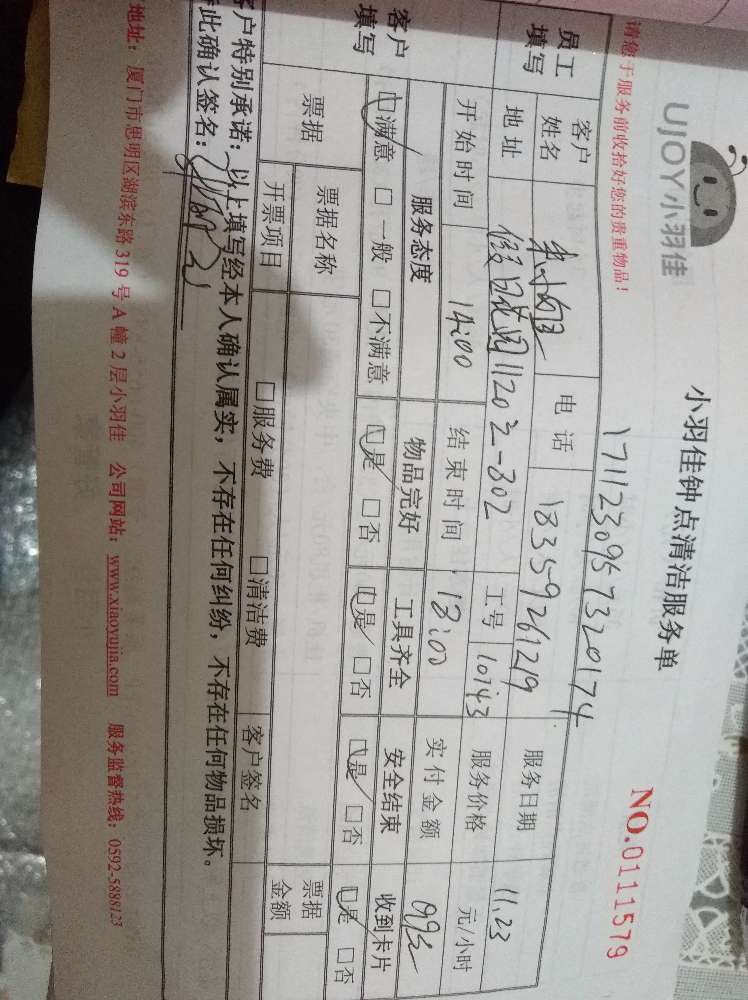 UJOY小羽佳
小羽佳钟点清洁服务单
请您于服务前收拾好您的贵重物品！
1711230957320174
NO.0111579
员工填写 客户姓名 电话 18359261219 服务日期 11.23
地址 假日花园11202-302 工号 10143 服务价格 元/小时
开始时间 14:00 结束时间 18:00 实付金额
客户填写 服务态度 物品完好 工具齐全 安全结束 收到卡片
☑满意 □一般 □不满意 ☑是 □否 ☑是 □否 ☑是 □否 ☑是 □否
票据 票据名称 票据金额
开票项目 □服务费 □清洁费 客户签名
客户特别承诺：以上填写经本人确认属实，不存在任何纠纷，不存在任何物品损坏。
此确认签名：
地址：厦门市思明区湖滨东路319号A幢2层小羽佳 公司网站：www.xiaoyujia.com 服务监督热线：0592-5888123